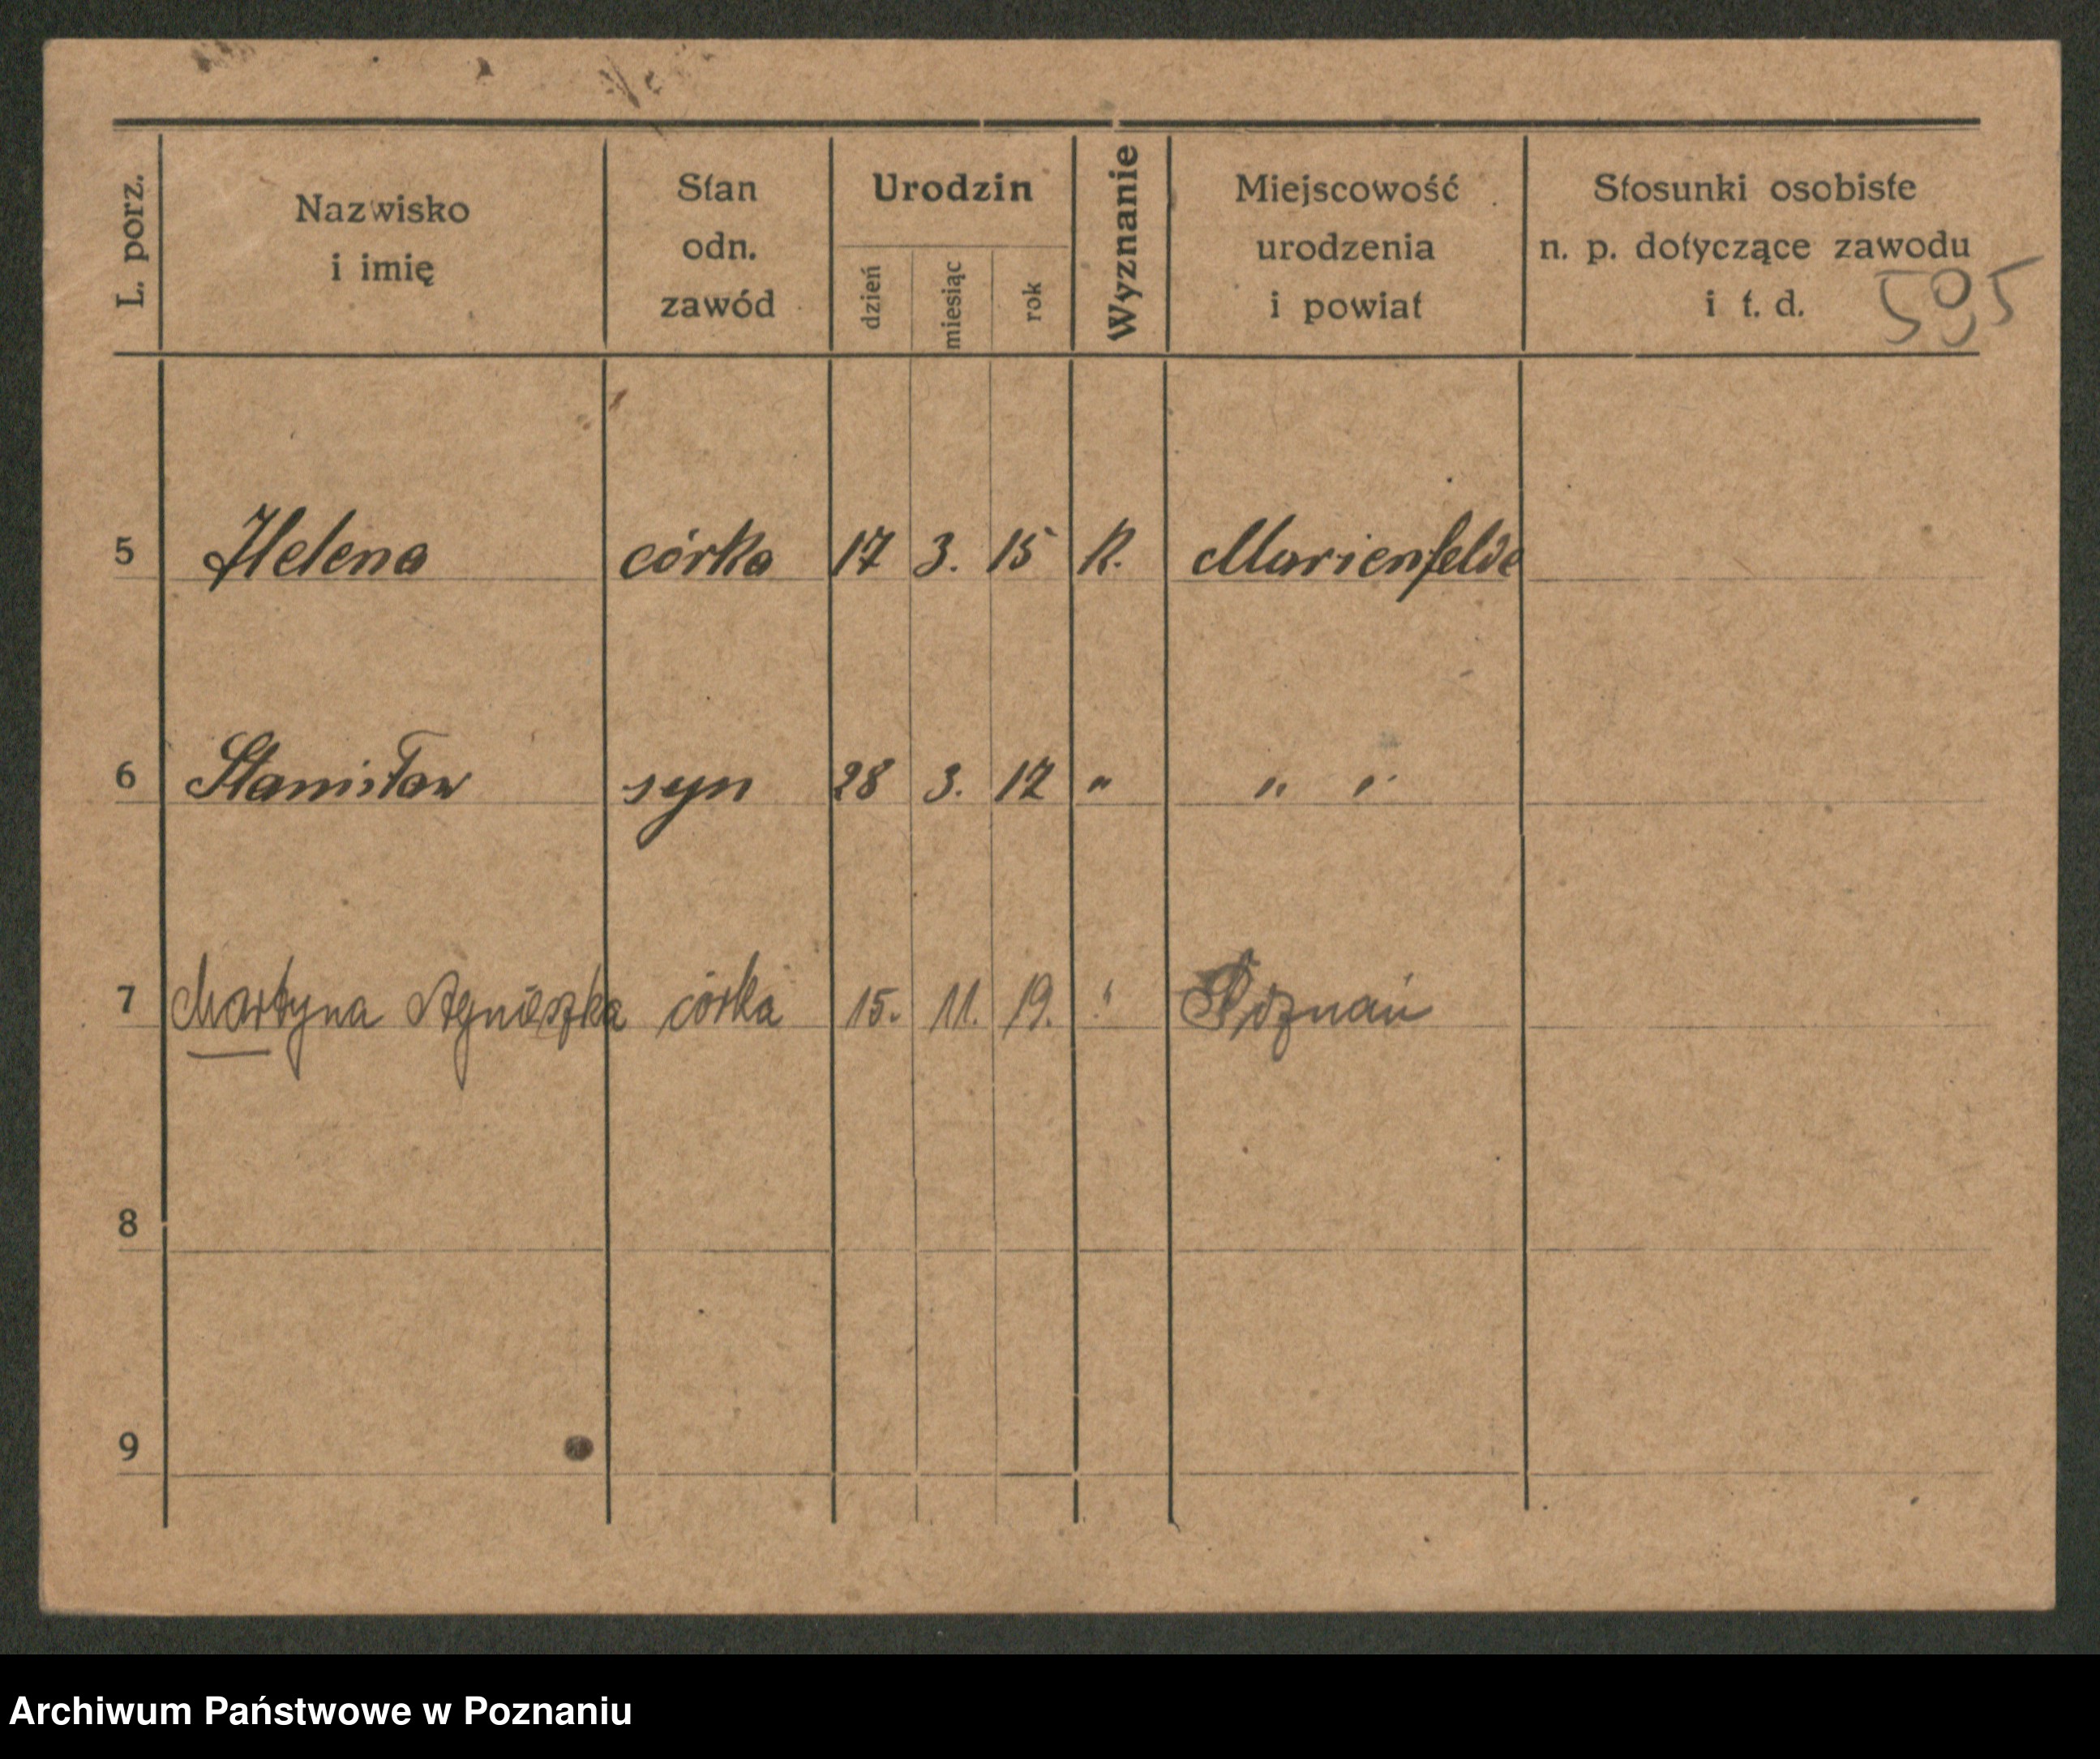 L. porz.
Nazwisko
i imię
Stan
odn.
zawód
Urodzin
dzień
miesiąc
rok
Wyznanie
Miejscowość
urodzenia
i powiat
Stosunki osobiste
n. p. dotyczące zawodu
i t. d.
595
5 Helena córka 17 3. 15 k. Marienfelde
6 Stanisław syn 28 3. 17 " " "
7 Martyna Agnieszka córka 15. 11. 19. " Poznań
8
9
Archiwum Państwowe w Poznaniu